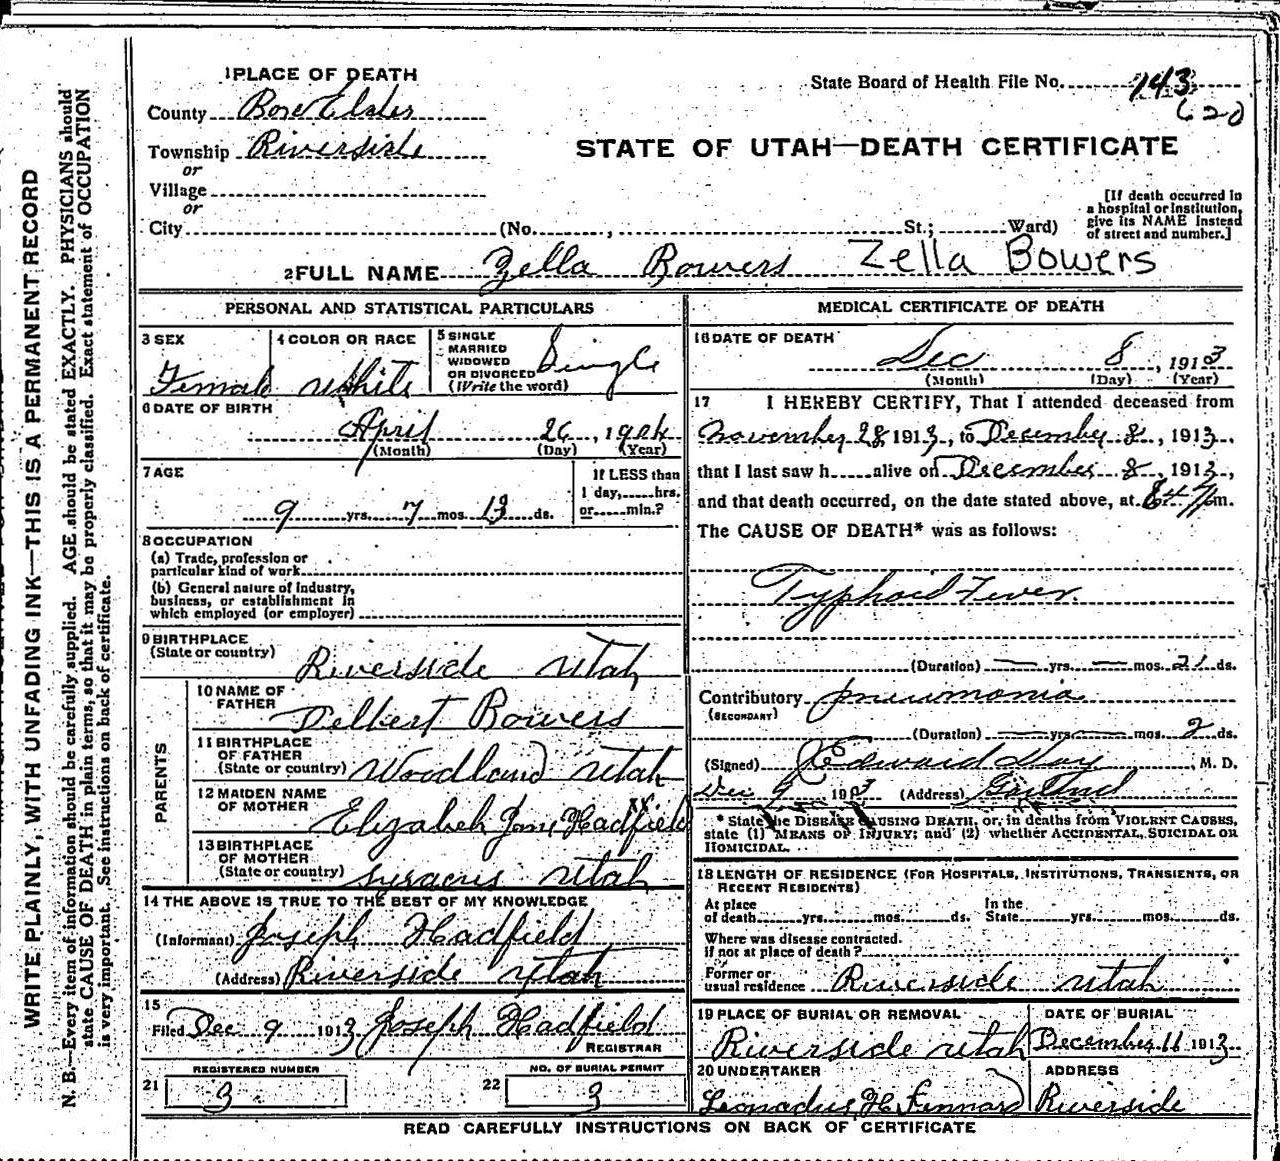 1 PLACE OF DEATH
State Board of Health File No. 143
620
County Box Elder
Township Riverside
or
Village
or
City (No. , St.; Ward)
STATE OF UTAH—DEATH CERTIFICATE
[If death occurred in
a hospital or institution,
give its NAME instead
of street and number.]
2 FULL NAME Zella Bowers Zella Bowers
PERSONAL AND STATISTICAL PARTICULARS
3 SEX
Female
4 COLOR OR RACE
White
5 SINGLE
MARRIED
WIDOWED
OR DIVORCED
(Write the word)
Single
6 DATE OF BIRTH
April 26, 1904
(Month) (Day) (Year)
7 AGE
9 yrs. 7 mos. 13 ds.
If LESS than
1 day, hrs.
or min.?
8 OCCUPATION
(a) Trade, profession or
particular kind of work
(b) General nature of industry,
business, or establishment in
which employed (or employer)
9 BIRTHPLACE
(State or country)
Riverside Utah
PARENTS
10 NAME OF
FATHER
Delbert Bowers
11 BIRTHPLACE
OF FATHER
(State or country)
Woodland Utah
12 MAIDEN NAME
OF MOTHER
Elizabeh Jane Hadfield
13 BIRTHPLACE
OF MOTHER
(State or country)
Syracus Utah
14 THE ABOVE IS TRUE TO THE BEST OF MY KNOWLEDGE
(Informant) Joseph Hadfield
(Address) Riverside Utah
15
Filed Dec 9 1913 Joseph Hadfield
REGISTRAR
21
REGISTERED NUMBER
3
22
NO. OF BURIAL PERMIT
3
MEDICAL CERTIFICATE OF DEATH
16 DATE OF DEATH
Dec 8, 1913
(Month) (Day) (Year)
17 I HEREBY CERTIFY, That I attended deceased from
November 28 1913, to December 8, 1913,
that I last saw h alive on December 8, 1913,
and that death occurred, on the date stated above, at m.
The CAUSE OF DEATH* was as follows:
Typhoid Fever
(Duration) — yrs. — mos. 21 ds.
Contributory pneumonia
(SECONDARY)
(Duration) — yrs. — mos. 2 ds.
(Signed) Edward Day, M. D.
Dec 9 1913 (Address) Garland
* State the DISEASE CAUSING DEATH, or, in deaths from VIOLENT CAUSES,
state (1) MEANS OF INJURY; and (2) whether ACCIDENTAL, SUICIDAL OR
HOMICIDAL.
18 LENGTH OF RESIDENCE (FOR HOSPITALS, INSTITUTIONS, TRANSIENTS, OR
RECENT RESIDENTS)
At place
of death yrs. mos. ds.
In the
State yrs. mos. ds.
Where was disease contracted.
if not at place of death?
Former or
usual residence Riverside Utah
19 PLACE OF BURIAL OR REMOVAL
Riverside Utah
DATE OF BURIAL
December 11 1913
20 UNDERTAKER
ADDRESS
Riverside
READ CAREFULLY INSTRUCTIONS ON BACK OF CERTIFICATE
WRITE PLAINLY, WITH UNFADING INK—THIS IS A PERMANENT RECORD
N. B.—Every item of information should be carefully supplied. AGE should be stated EXACTLY. PHYSICIANS should
state CAUSE OF DEATH in plain terms, so that it may be properly classified. Exact statement of OCCUPATION
is very important. See instructions on back of certificate.